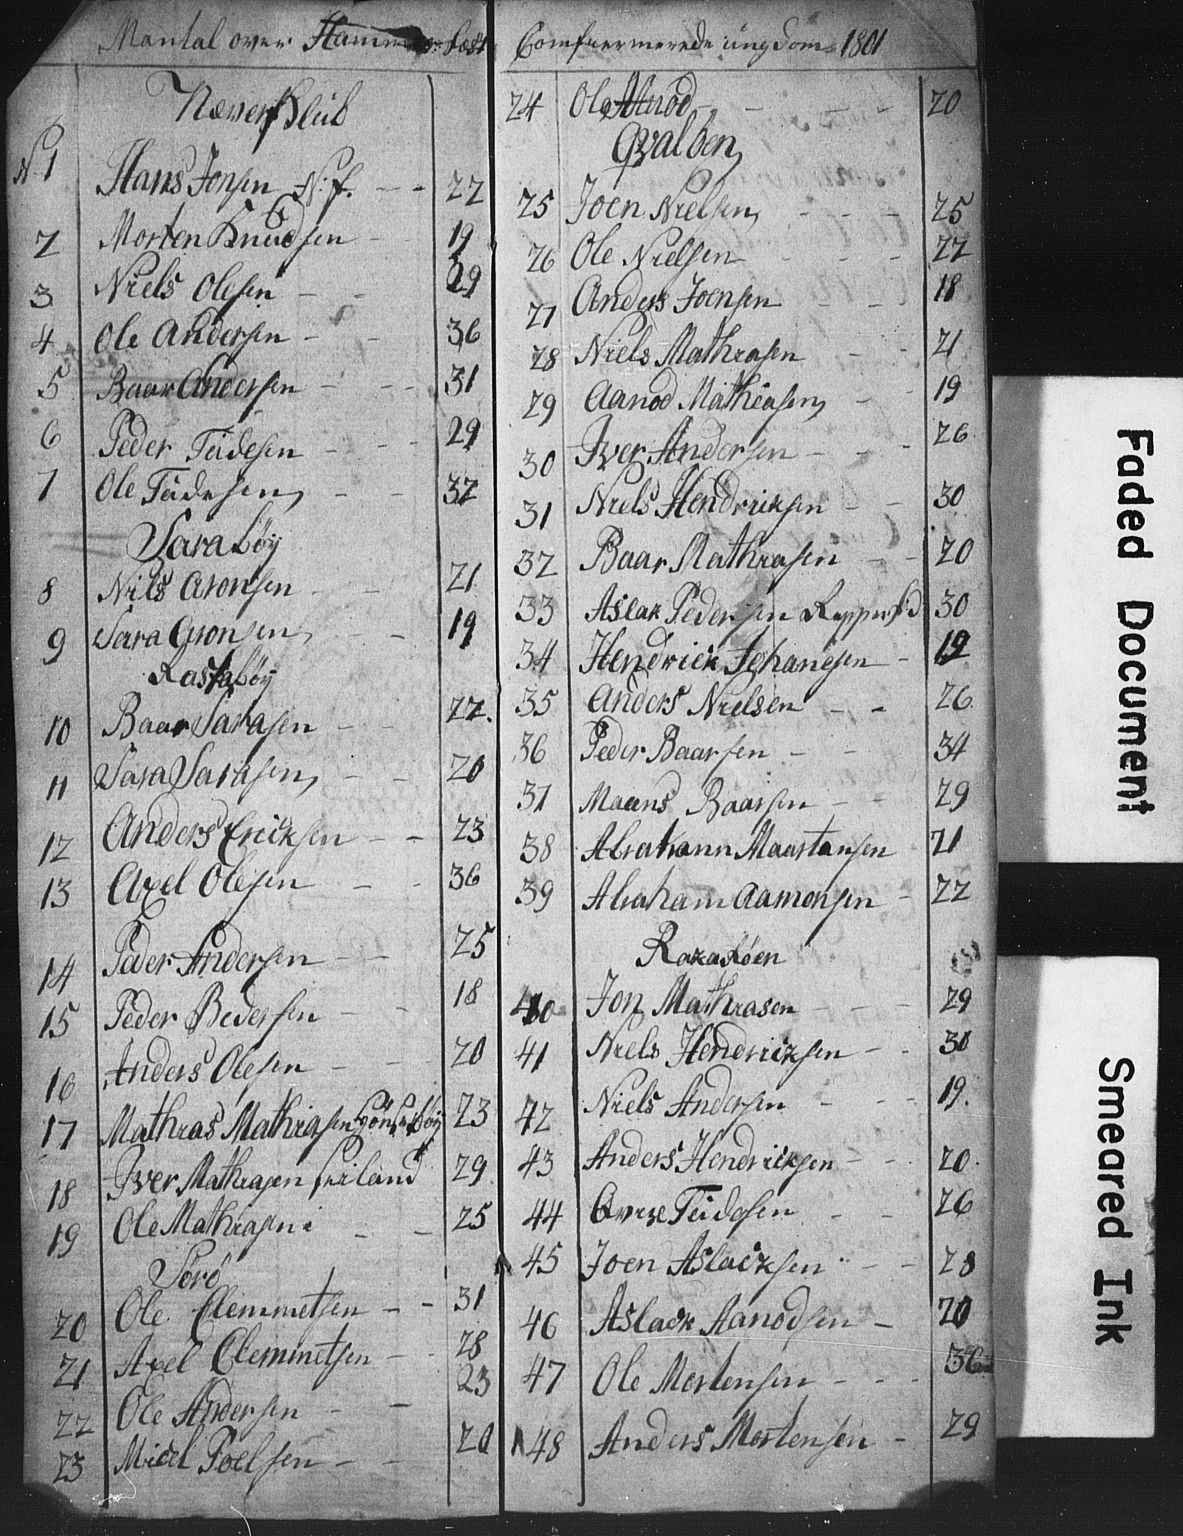 Mantal over
Næverklub
N 1 Hans Jonsen N. f. - - 22
2 Morten Knudsen - 19
3 Niels Olesen - - 29
4 Ole Andersen - - 36
5 Baar Andersen - - - 31
6 Peder Tudesen - - - 29
7 Ole Tudesen, - - 32
Sarabøÿ
8 Nils Aronsen - - 21
9 Sara Gronsen, - - 19
Rastabøÿ
10 Baar Sarasen - - 22.
11 Sara Sarasen, - - 20
12 Anders Ericksen - - 23
13 Axel Olesen - - 36
14 Peder Andersen - - 25
15 Peder Pedersen - - 18
16 Anders Olesen - - 20
17 Mathias Mathiasen 23
18 Iver Mathiasen 29
19 Ole Mathiasen - - 25
Sørø
20 Ole Clemmetsen - - 31
21 Axel Clemmetsen - - 28
22 Ole Andersen - - 23
23 Mick Poelsen - - 20
Comfuermerede ungdom 1801
24 Ole - - - 20
Qvalben,
25 Joen Nielsen, - - - 25
26 Ole Nielsen - - - 22
27 Anders Joensen - - 18
28 Niels Mathiasen - - 21
29 Aanod Mathiasen, - - 19
30 Iver Andersen - - - 26
31 Niels Hendricksen - - 30
32 Baar Mathiasen - - 20
33 Aslak Pedersen 30
34 Hendrick Johanesen - 19
35 Anders Nielsen - - 26
36 Peder Baarsen - - 34
37 Maans Baarsen - - 29
38 Abraham Maartensen 21
39 Abraham Aamonsen - 22
40 Jon Mathiasen - - - 29
41 Niels Hendricksen - - 30
42 Niels Andersen - - - 19.
43 Anders Hendricksen - - 20
44 Tudesen - - 26
45 Joen Aslacksen - - 28
46 Aslack Aanodsen - 20
47 Ole Mortensen - - - 36
48 Anders Mortensen - 29
Faded Document
Smeared Ink